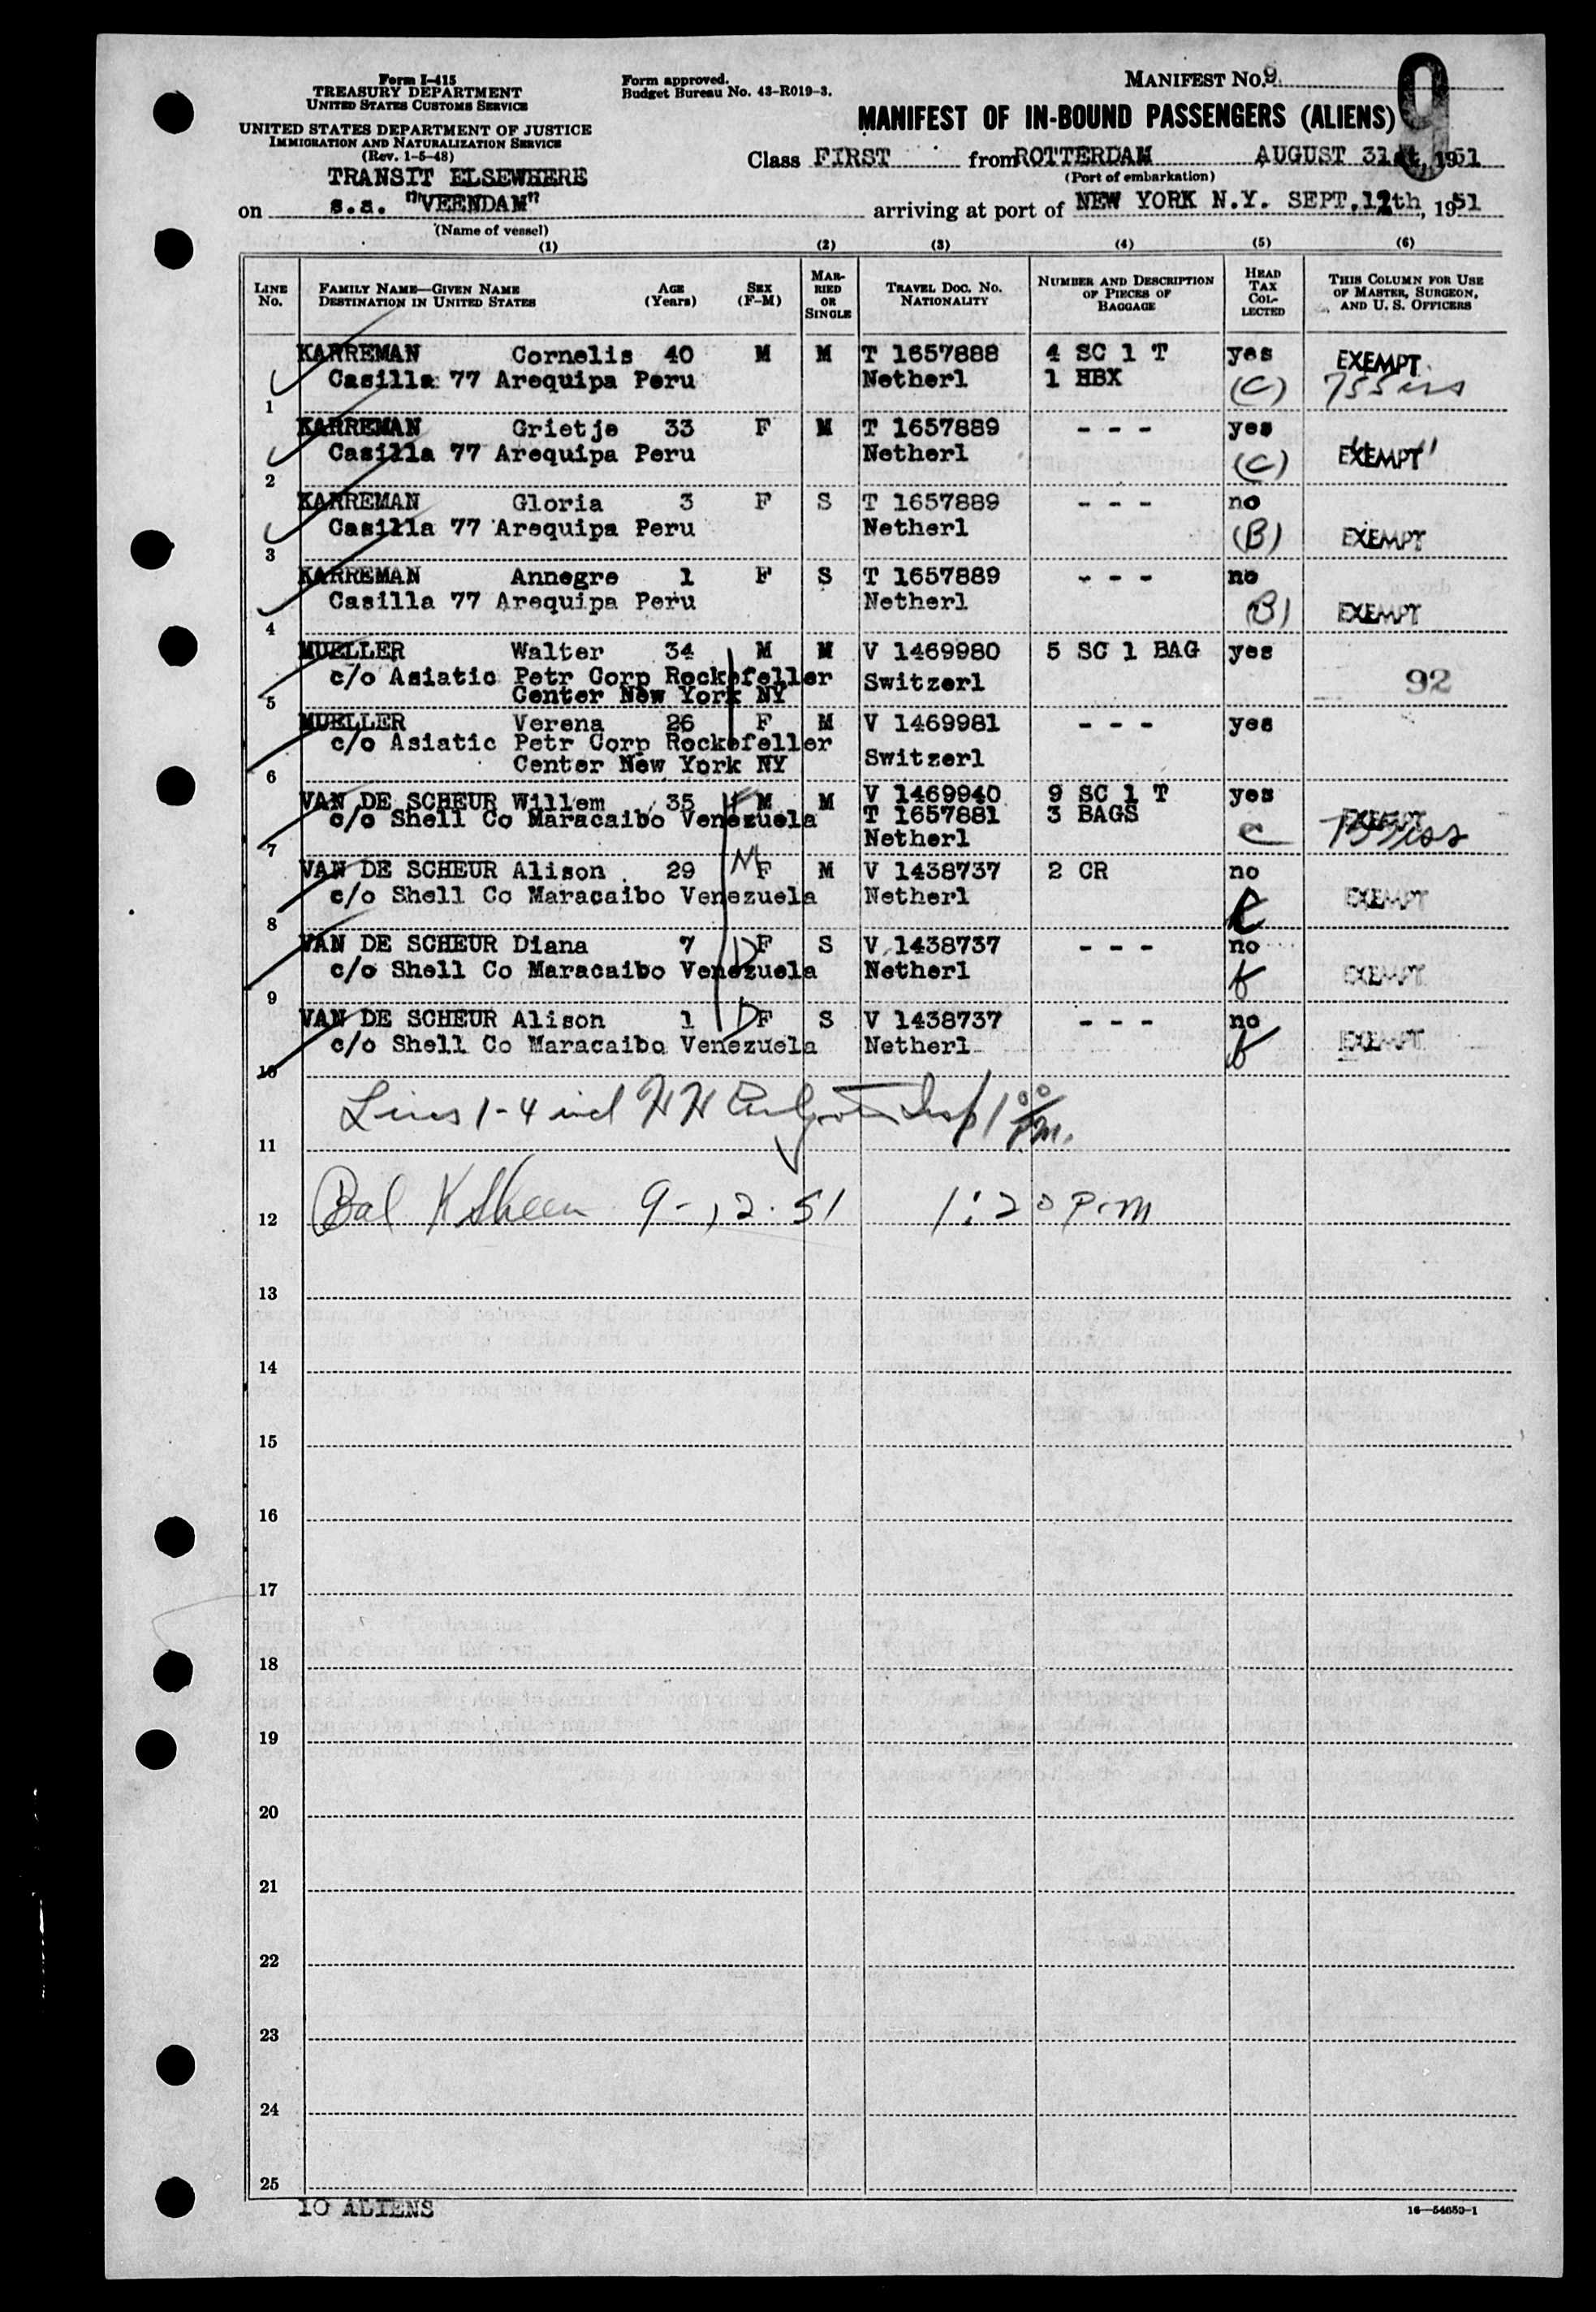 Form I-415
TREASURY DEPARTMENT
UNITED STATES CUSTOMS SERVICE
UNITED STATES DEPARTMENT OF JUSTICE
IMMIGRATION AND NATURALIZATION SERVICE
(Rev. 1-5-48)
Form approved.
Budget Bureau No. 43-R019-3.
MANIFEST NO. 9
9
MANIFEST OF IN-BOUND PASSENGERS (ALIENS)
Class FIRST from ROTTERDAM AUGUST 31st, 1951
(Port of embarkation)
TRANSIT ELSEWHERE
on s.s. "VEENDAM" arriving at port of NEW YORK N.Y. SEPT. 12th, 1951
(Name of vessel)
(1) (2) (3) (4) (5) (6)
LINE No. FAMILY NAME—GIVEN NAME DESTINATION IN UNITED STATES AGE (Years) SEX (F-M) MARRIED OR SINGLE TRAVEL DOC. NO. NATIONALITY NUMBER AND DESCRIPTION OF PIECES OF BAGGAGE HEAD TAX COLLECTED THIS COLUMN FOR USE OF MASTER, SURGEON, AND U. S. OFFICERS
KARREMAN Cornelis 40 M M T 1657888 4 SC 1 T yes EXEMPT
Casilla 77 Arequipa Peru Netherl 1 HBX (C)
1
KARREMAN Grietje 33 F M T 1657889 - - - yes
Casilla 77 Arequipa Peru Netherl (C) EXEMPT
2
KARREMAN Gloria 3 F S T 1657889 - - - no
Casilla 77 Arequipa Peru Netherl (B) EXEMPT
3
KARREMAN Annegre 1 F S T 1657889 - - - no
Casilla 77 Arequipa Peru Netherl (B) EXEMPT
4
MUELLER Walter 34 M M V 1469980 5 SC 1 BAG yes
c/o Asiatic Petr Corp Rockefeller Switzerl 92
Center New York NY
5
MUELLER Verena 26 F M V 1469981 - - - yes
c/o Asiatic Petr Corp Rockefeller
Center New York NY Switzerl
6
VAN DE SCHEUR Willem 35 M M V 1469940 9 SC 1 T yes
c/o Shell Co Maracaibo Venezuela T 1657881 3 BAGS EXEMPT
Netherl C
7
VAN DE SCHEUR Alison 29 M F M V 1438737 2 CR no
c/o Shell Co Maracaibo Venezuela Netherl C EXEMPT
8
VAN DE SCHEUR Diana 7 D F S V 1438737 - - - no
c/o Shell Co Maracaibo Venezuela Netherl EXEMPT
9
VAN DE SCHEUR Alison 1 D F S V 1438737 - - - no
c/o Shell Co Maracaibo Venezuela Netherl EXEMPT
10
Lines 1-4 incl Insp 1 00 P.M.
11
Bal 9-12-51 1:20 P.M
12
13
14
15
16
17
18
19
20
21
22
23
24
25
10 ALIENS
16—54650-1